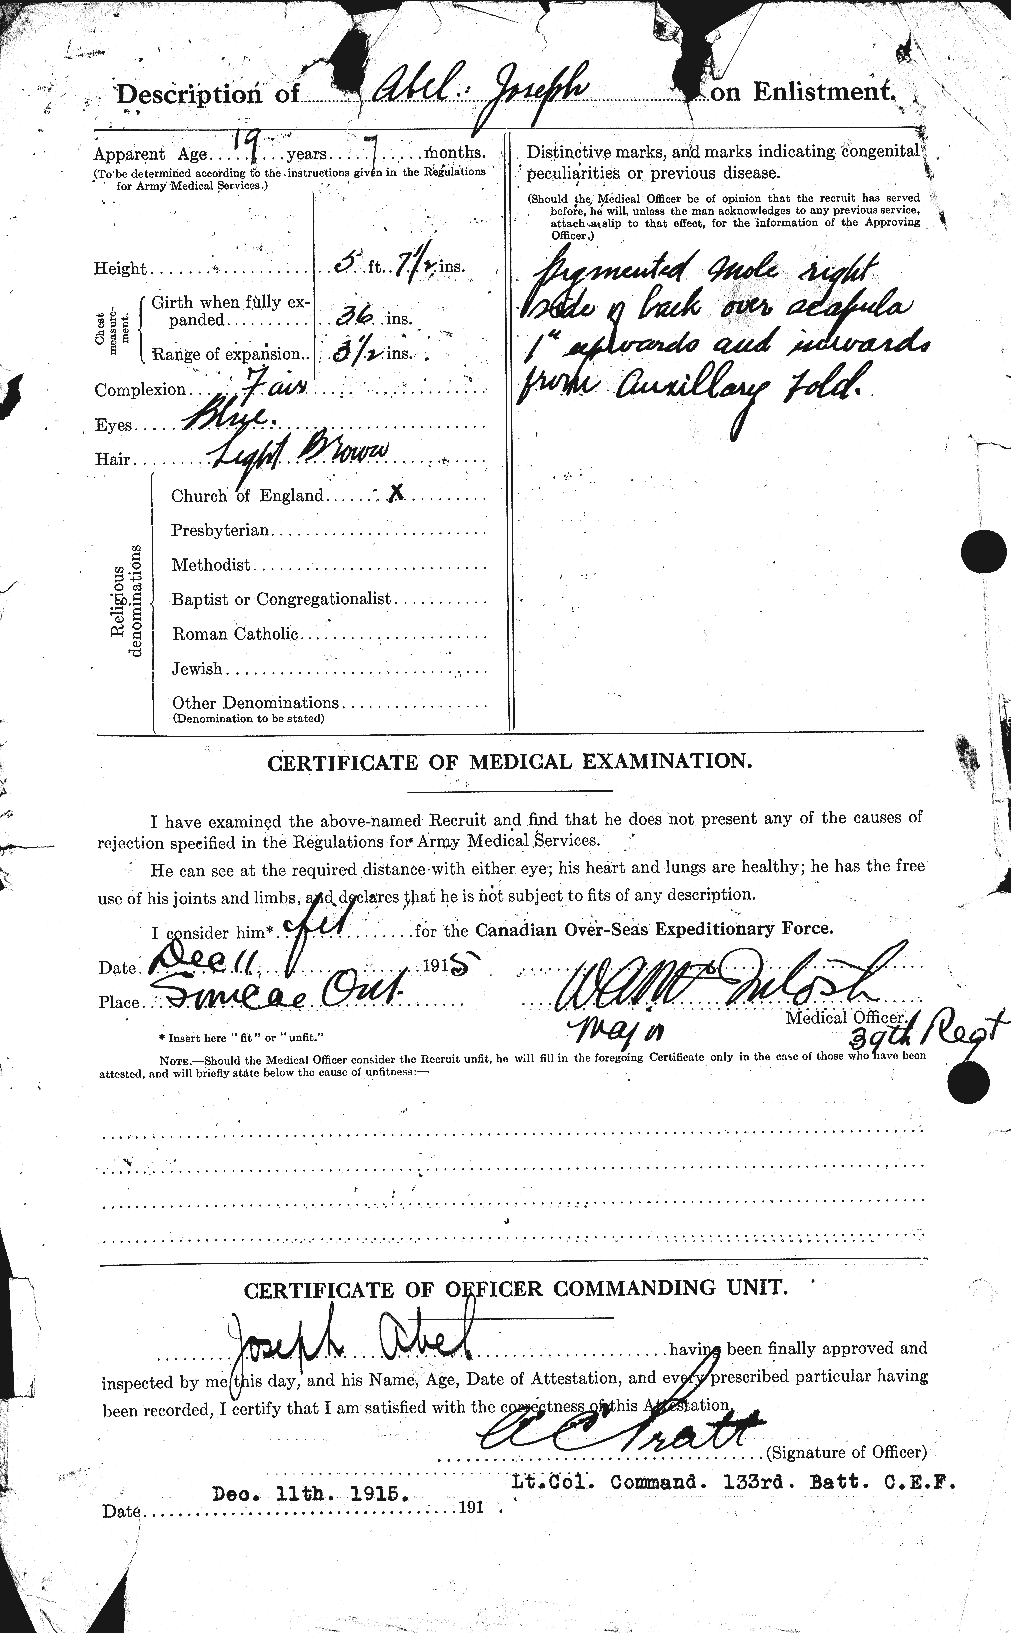 Description of Abel. Joseph on Enlistment.
Apparent Age 19 years 7 months.
(To be determined according to the instructions given in the Regulations
for Army Medical Services.)
Height 5 ft. 7 1/2 ins.
Chest measurement.
Girth when fully ex-
panded 36 ins.
Range of expansion.. 3 1/2 ins.
Complexion Fair
Eyes Blue.
Hair Light Brown
Religious denominations
Church of England X
Presbyterian
Methodist
Baptist or Congregationalist
Roman Catholic
Jewish
Other Denominations
(Denomination to be stated)
Distinctive marks, and marks indicating congenital
peculiarities or previous disease.
(Should the Medical Officer be of opinion that the recruit has served
before, he will, unless the man acknowledges to any previous service,
attach a slip to that effect, for the information of the Approving
Officer.)
Pigmented mole right
side of back over scapula
1" upwards and inwards
from Auxillary fold.
CERTIFICATE OF MEDICAL EXAMINATION.
I have examined the above-named Recruit and find that he does not present any of the causes of
rejection specified in the Regulations for Army Medical Services.
He can see at the required distance with either eye; his heart and lungs are healthy; he has the free
use of his joints and limbs, and declares that he is not subject to fits of any description.
I consider him* fit for the Canadian Over-Seas Expeditionary Force.
Date Dec 11 1915
Place Simcoe Ont.
W A McIntosh
Medical Officer.
Major 39th Regt
* Insert here "fit" or "unfit."
NOTE.—Should the Medical Officer consider the Recruit unfit, he will fill in the foregoing Certificate only in the case of those who have been
attested, and will briefly state below the cause of unfitness:—
CERTIFICATE OF OFFICER COMMANDING UNIT.
Joseph Abel having been finally approved and
inspected by me this day, and his Name, Age, Date of Attestation, and every prescribed particular having
been recorded, I certify that I am satisfied with the correctness of this Attestation.
A C Pratt (Signature of Officer)
Lt.Col. Command. 133rd. Batt. C.E.F.
Date Dec. 11th. 1915. 191 .